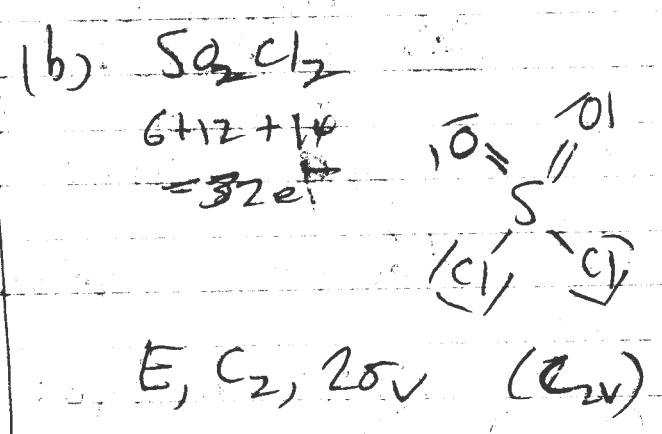 (b) SO₂Cl₂
6+12+14
=32e⁻
O O
S
Cl Cl
E, C₂, 2σv (C₂v)